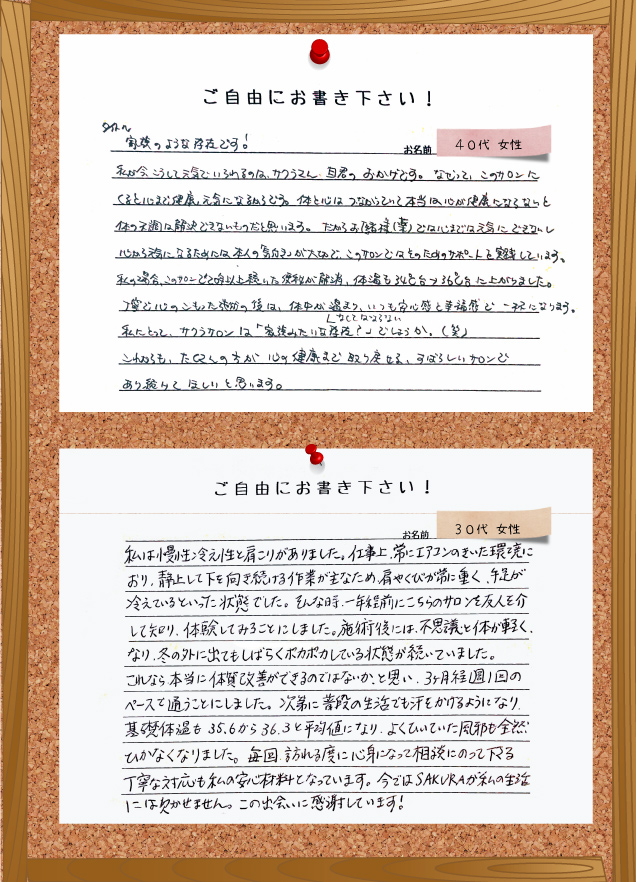 ご自由にお書き下さい！
タイトル
家族のような存在です！
お名前 40代 女性
私が今、こうして元気でいられるのは、サクラさん、皆君のおかげです。なぜって、このサロンに
くると心まで健康、元気になるからです。体と心はつながっていて本当は心が健康にならないと
体の不調は解決できないものだと思います。だからお客様(業)では心までは元気にできないし
心から元気になるためには本人の「気向き」が大切で、このサロンではそのためのサポートを実践しています。
私の場合、このサロンで20年以上続いた便秘が解消、体温も34℃台→36℃台に上がりました。
丁寧で心のこもった施術の後は、体中が温まり、いつも安心感と幸福感で一杯になります。
なくてはならない
私にとって、サクラサロンは「家族みたいな存在？」でしょうか。(笑)
これからも、たくさんの方が心の健康まで取り戻せる、すばらしいサロンで
あり続けてほしいと思います。
ご自由にお書き下さい！
お名前 30代 女性
私は慢性冷え性と肩こりがありました。仕事上、常にエアコンのきいた環境に
おり、静止して下を向き続ける作業が主なため、肩やくびが常に重く、手足が
冷えているといった状態でした。そんな時、一年程前にこちらのサロンを友人を介
して知り、体験してみることにしました。施術後には、不思議と体が軽く、
なり、冬の外に出てもしばらくポカポカしている状態が続いていました。
これなら本当に体質改善ができるのではないか、と思い、3ヶ月程週1回の
ペースで通うことにしました。次第に普段の生活でも汗をかけるようになり、
基礎体温も 35.6から36.3と平均値になり、よくひいていた風邪も全然
ひかなくなりました。毎回、訪れる度に心身になって相談にのって下さる
丁寧な対応も私の安心材料となっています。今ではSAKURAが私の生活
には欠かせません。この出会いに感謝しています！